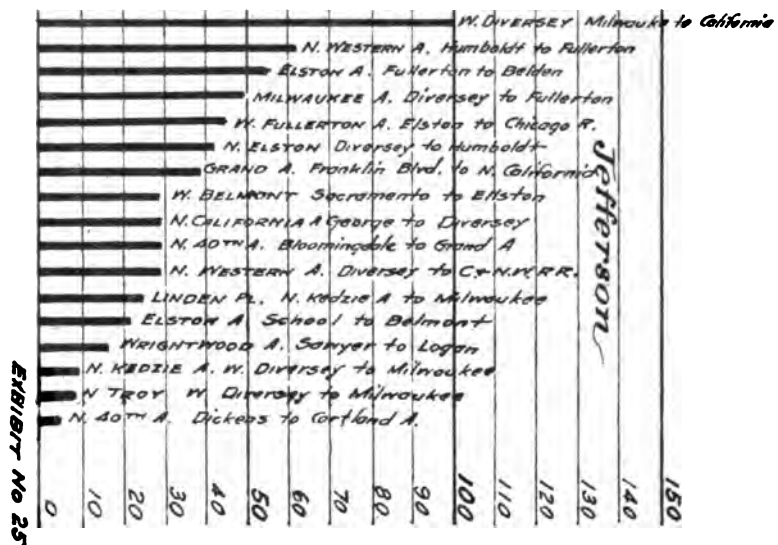 W. DIVERSEY Milwauke to California
N. WESTERN A. Humboldt to Fullerton
ELSTON A. Fullerton to Belden
MILWAUKEE A. Diversey to Fullerton
W. FULLERTON A. Elston to Chicago R.
N. ELSTON Diversey to Humboldt
GRAND A. Franklin Blvd. to N. California
W. BELMONT Sacramento to Ellston
N. CALIFORNIA A George to Diversey
N. 40TH A. Bloomingdale to Grand A
N. WESTERN A. Diversey to C & N.W.R.R.
LINDEN PL. N. Kedzie A to Milwaukee
ELSTON A School to Belmont
WRIGHTWOOD A. Sawyer to Logan
N. KEDZIE A. W. Diversey to Milwaukee
N TROY W. Diversey to Milwaukee
N. 40TH A. Dickens to Cortland A.
Jefferson
0 10 20 30 40 50 60 70 80 90 100 110 120 130 140 150
EXHIBIT No 25